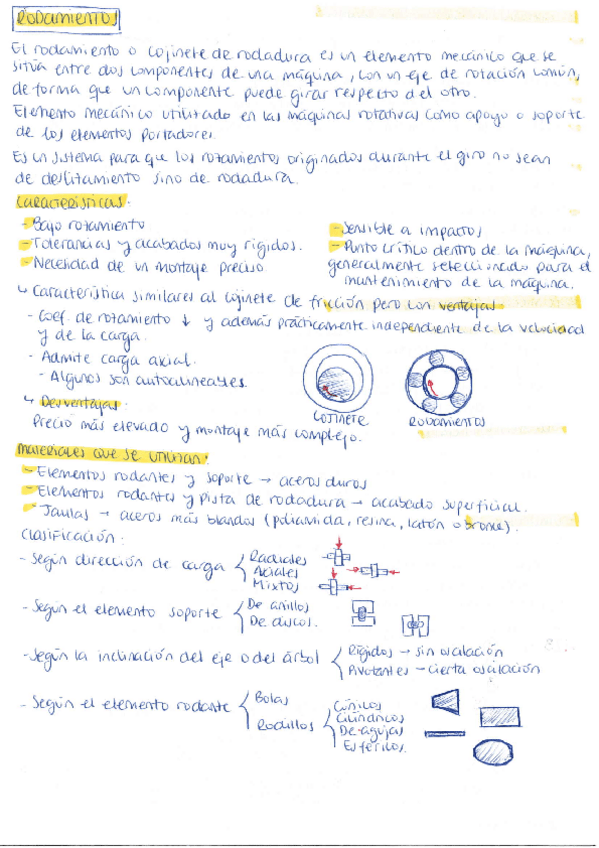 RODAMIENTOS
El rodamiento o cojinete de rodadura es un elemento mecánico que se
sitúa entre dos componentes de una máquina, con un eje de rotación común,
de forma que un componente puede girar respecto del otro.
Elemento mecánico utilizado en las máquinas rotativas como apoyo o soporte
de los elementos portadores.
Es un sistema para que los rozamientos originados durante el giro no sean
de deslizamiento sino de rodadura.
Características.
- Bajo rozamiento
- Tolerancias y acabados muy rígidos.
- Necesidad de un montaje preciso
- Sensible a impactos
- Punto crítico dentro de la máquina,
generalmente seleccionado para el
mantenimiento de la máquina.
↳ Característica similares al cojinete de fricción pero con ventajas
- Coef. de rozamiento ↓ y además prácticamente independiente de la velocidad
y de la carga.
- Admite carga axial.
- Algunos son autoalineables.
↳ Desventajas.
Precio más elevado y montaje más complejo.
COJINETE
RODAMIENTOS
Materiales que se utilizan:
- Elementos rodantes y soporte → aceros duros
- Elementos rodantes y pista de rodadura → acabado superficial.
- Jaulas → aceros más blandos (poliamida, resina, latón o bronce).
Clasificación:
- Según dirección de carga
Radiales
Axiales
Mixtos
- Según el elemento soporte
De anillos
De discos.
- Según la inclinación del eje o del árbol
Rígidos → sin oscilación
Pivotantes → cierta oscilación
- Según el elemento rodante
Bolas
Rodillos
Cónicos
Cilíndricos
De agujas
Esféricos.